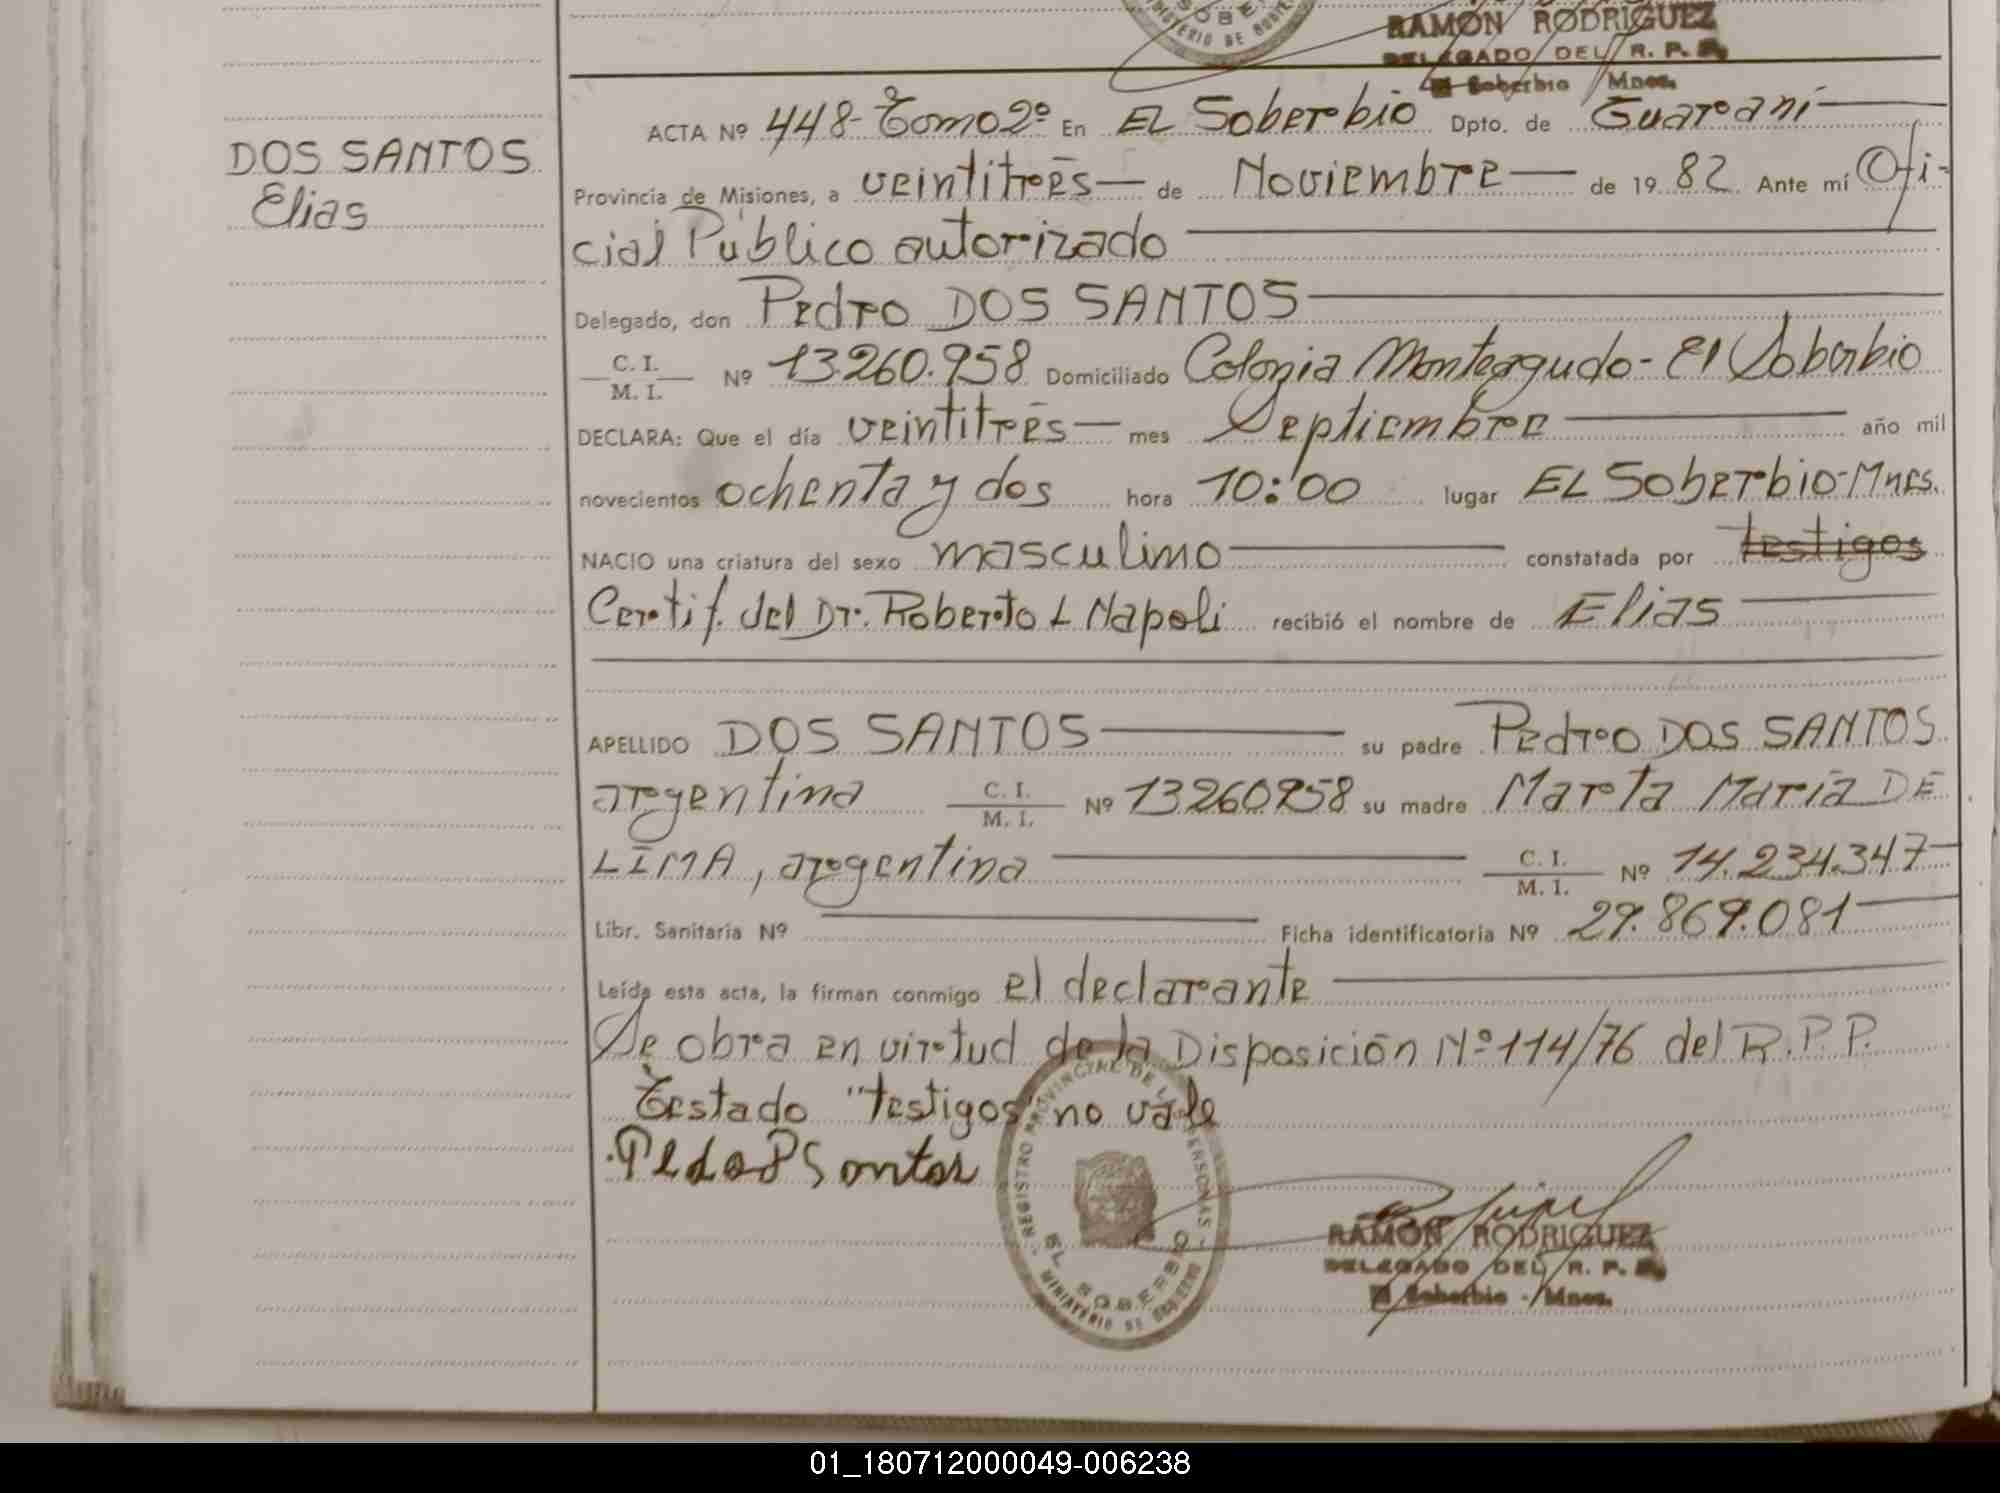 SOBER
MINISTERIO DE GOBIERNO
RAMON RODRIGUEZ
DELEGADO DEL R. P. P.
El Soberbio Mnes.
DOS SANTOS
Elias
ACTA Nº 448-Tomo2º En EL Soberbio Dpto. de Guaraní
Provincia de Misiones, a veintitrés de Noviembre de 19 82 Ante mí Ofi-
cial Público autorizado
Delegado, don Pedro DOS SANTOS
C. I.
M. I. Nº 13.260.958 Domiciliado Colonia Monteagudo - El Soberbio
DECLARA: Que el día veintitrés mes Septiembre año mil
novecientos ochenta y dos hora 10:00 lugar EL Soberbio-Mnes.
NACIO una criatura del sexo masculino constatada por testigos
Certif. del Dr. Roberto L Napoli recibió el nombre de Elias
APELLIDO DOS SANTOS su padre Pedro DOS SANTOS
argentina C. I.
M. I. Nº 13260958 su madre Marta María DE
LIMA, argentina C. I.
M. I. Nº 14.234.347
Libr. Sanitaria Nº Ficha identificatoria Nº 29.869.081
Leída esta acta, la firman conmigo el declarante
Se obra en virtud de la Disposición Nº 114/76 del R.P.P.
Testado "testigos" no vale
REGISTRO PROVINCIAL DE LAS PERSONAS
EL SOBERBIO
MINISTERIO DE GOBIERNO
RAMON RODRIGUEZ
DELEGADO DEL R. P. P.
El Soberbio - Mnes.
01_180712000049-006238